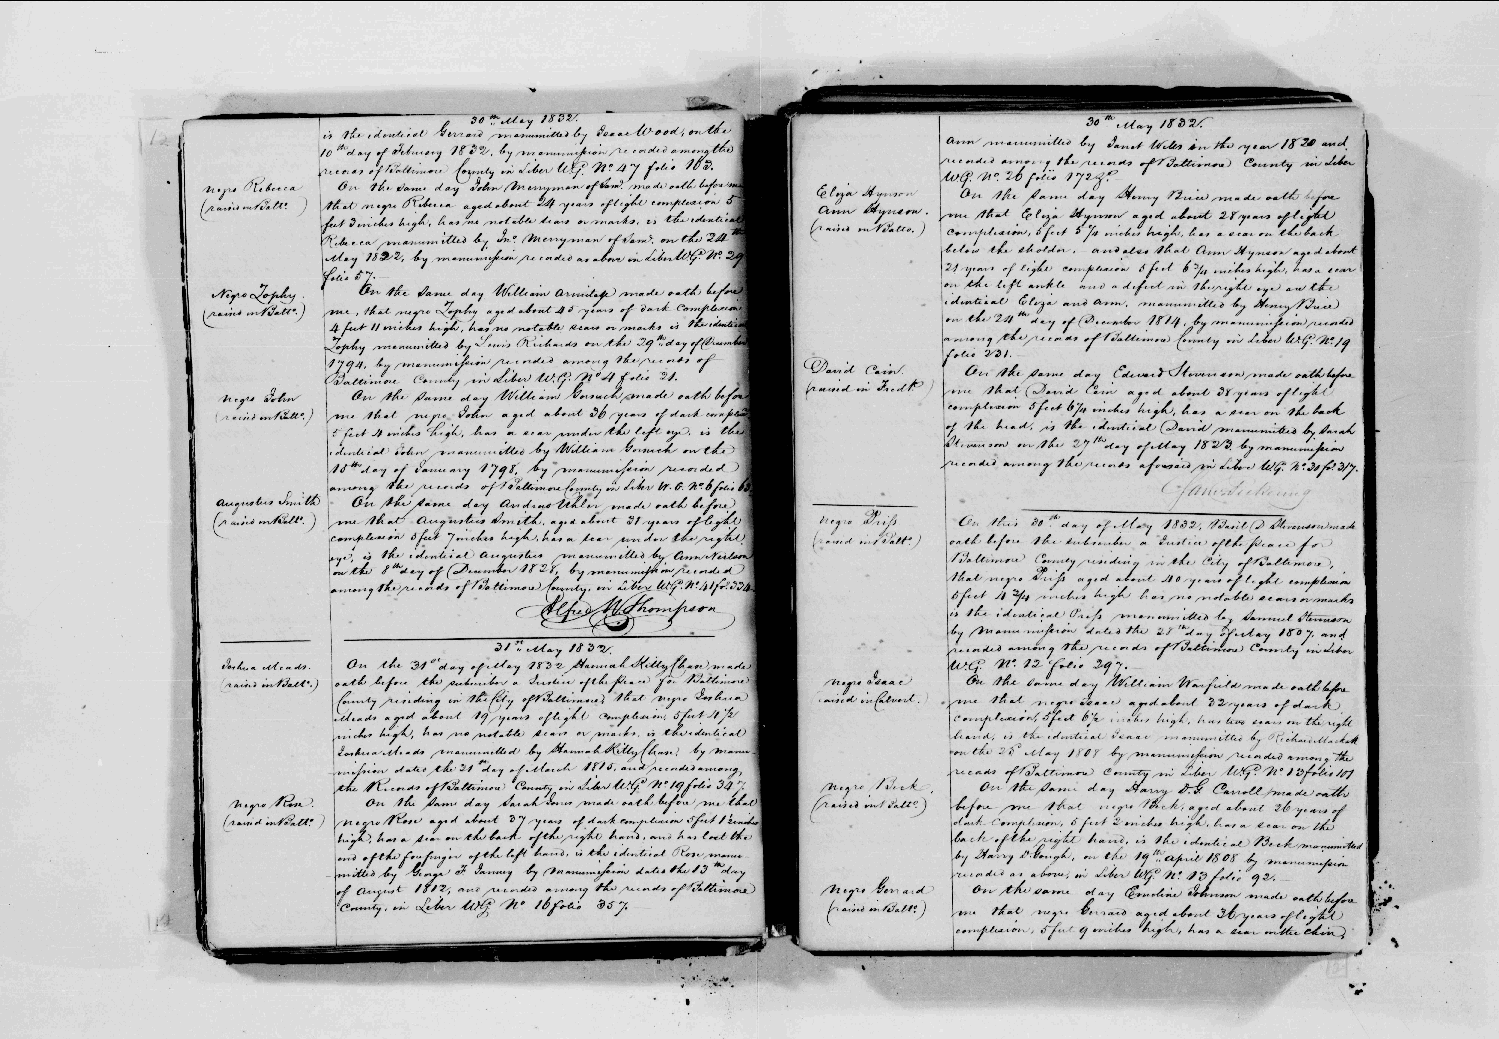 30th May 1832.
is the identical Gerrard manumitted by Isaac Wood, on the
10th day of February 1832, by manumission recorded among the
records of Baltimore County in Liber W.G. No. 47 folio 103.
negro Rebecca
(raised in Balto.)
On the same day John Merryman of Saml. made oath before me
that negro Rebecca aged about 24 years of light complexion 5
feet 3 inches high, has no notable scars or marks, is the identical
Rebecca manumitted by Jno. Merryman of Saml. on the 24th
May 1822, by manumission recorded as above in Liber W.G. No. 29
folio 57.
Negro Zophy.
(raised in Balto.)
On the same day William Armitage made oath before
me, that negro Zophy aged about 45 years of dark complexion
4 feet 11 inches high, has no notable scars or marks is the identical
Zophy manumitted by Lewis Richards on the 29th day of December
1794, by manumission recorded among the records of
Baltimore County in Liber W.G. No. 4 folio 21.
negro John
(raised in Balto.)
On the same day William Gorsuch made oath before
me that negro John aged about 36 years of dark complexion
5 feet 4 inches high, has a scar under the left eye, is the
identical John manumitted by William Gorsuch on the
15th day of January 1798, by manumission recorded
among the records of Baltimore County in Liber W.G. No. 6 folio 63
Augustus Smith
(raised in Balto.)
On the same day Andrew Uhler made oath before
me that Augustus Smith, aged about 31 years of light
complexion 5 feet 7 inches high, has a scar under the right
eye, is the identical Augustus manumitted by Ann Neilson
on the 8th day of December 1828, by manumission recorded
among the records of Baltimore County, in Liber W.G. No. 41 fo. 334
Alfred W. Thompson
31st May 1832.
Joshua Meads.
(raised in Balto.)
On the 31st day of May 1832 Hannah Kitty Chase made
oath before the subscriber a Justice of the Peace for Baltimore
County residing in the City of Baltimore, that negro Joshua
Meads aged about 19 years of light complexion, 5 feet 4 1/2
inches high, has no notable scars or marks, is the identical
Joshua Meads manumitted by Hannah Kitty Chase, by manu-
mission dated the 21st day of March 1815, and recorded among
the Records of Baltimore County in Liber W.G. No. 19 folio 347.
negro Rose.
(raised in Balto.)
On the same day Sarah Jones made oath before me that
negro Rose aged about 37 years of dark complexion 5 feet 1 1/2 inches
high, has a scar on the back of the right hand, and has lost the
end of the forefinger of the left hand, is the identical Rose, manu-
mitted by George F Janney by Manumission dated the 13th day
of August 1812, and recorded among the records of Baltimore
County, in Liber W.G. No. 16 folio 357.
30th May 1832.
Ann manumitted by Janet Wiles in the year 1820 and
recorded among the records of Baltimore County in Liber
W.G. No. 26 folio 172
Eliza Hynson
Ann Hynson.
(raised in Balto.)
On the same day Henry Brice made oath before
me that Eliza Hynson aged about 28 years of light
complexion, 5 feet 5 3/4 inches high, has a scar on the back
below the sholder, and also that Ann Hynson aged about
21 years of light complexion 5 feet 6 3/4 inches high, has a scar
on the left ankle and a defect in the right eye are the
identical Eliza and Ann, manumitted by Henry Brice
on the 24th day of December 1814, by manumission recorded
among the records of Baltimore County in Liber W.G. No. 19
folio 231.
David Cain.
(raised in Fredk.)
On the same day Edward Stevenson made oath before
me that David Cain aged about 38 years of light
complexion 5 feet 6 1/4 inches high, has a scar on the back
of the head, is the identical David manumitted by Sarah
Stevenson on the 27th day of May 1823 by manumission
recorded among the records aforesaid in Liber W.G. No. 30 fo. 317.
negro Priss
(raised in Balto.)
On this 30th day of May 1832, Basil D Stevenson made
oath before the subscriber a Justice of the Peace for
Baltimore County residing in the City of Baltimore,
that negro Priss aged about 40 years of light complexion
5 feet 4 3/4 inches high has no notable scars or marks
is the identical Priss manumitted by Samuel Stevenson
by manumission dated the 28th day of May 1807, and
recorded among the records of Baltimore County in Liber
W.G. No. 12 folio 297.
negro Isaac
(raised in Calvert.)
On the same day William Warfield made oath before
me that negro Isaac aged about 32 years of dark
complexion, 5 feet 6 1/2 inches high, has two scars on the right
hand, is the identical Isaac manumitted by Richard Mackall
on the 25th May 1808 by manumission recorded among the
records of Baltimore County in Liber W.G. No. 13 folio 101
negro Beck.
(raised in Balto.)
On the same day Harry D.G. Carroll made oath
before me that negro Beck, aged about 26 years of
dark complexion, 5 feet 2 inches high, has a scar on the
back of the right hand, is the identical Beck manumitted
by Harry D Gough, on the 19th April 1808 by manumission
recorded as above, in Liber W.G. No. 13 folio 92.
Negro Gerrard
(raised in Balto.)
On the same day Emeline Johnson made oath before
me that negro Gerrard aged about 36 years of light
complexion, 5 feet 9 inches high, has a scar on the chin,